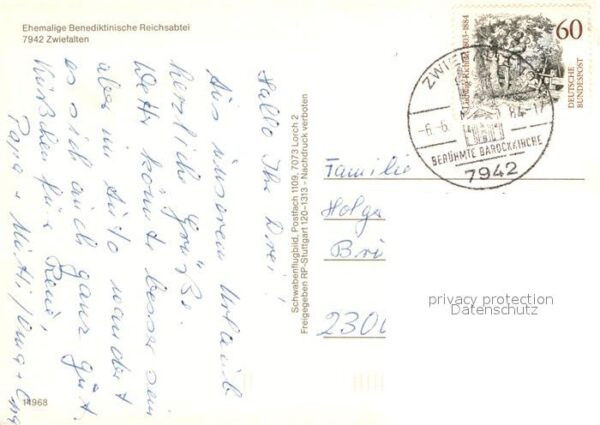 Ehemalige Benediktinische Reichsabtei
7942 Zwiefalten
Hallo Ihr Drei!
Aus unserem Urlaub
herzliche Grüße.
Wetter könnte besser sein
aber im Auto wandert
es sich auch ganz gut.
Küßchen für René,
Papa + Mutti / Oma + Opa
14968
Schwabenflugbild, Postfach 1109, 7073 Lorch 2
Freigegeben RP-Stuttgart 120-1313 - Nachdruck verboten
60
DEUTSCHE
BUNDESPOST
Ludwig Richter 1803-1884
ZWIEF
-6.-6. 84-17
BERÜHMTE BAROCKKIRCHE
7942
Familie
Holge
Bri
2300
privacy protection
Datenschutz